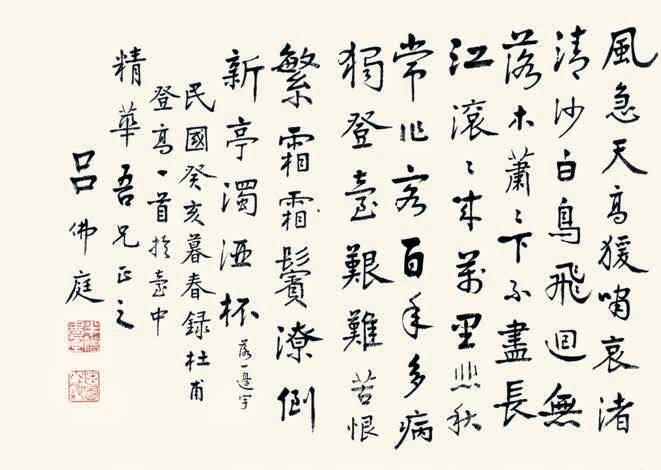 風急天高猨嘯哀渚
清沙白鳥飛迴無
落木蕭〻下不盡長
江滾〻來萬里悲秋
常作客百年多病
獨登臺艱難苦恨
繁霜霜鬢潦倒
新亭濁酒杯 落一邊字
民國癸亥暮春錄杜甫
登高一首於臺中
精華吾兄正之
呂佛庭